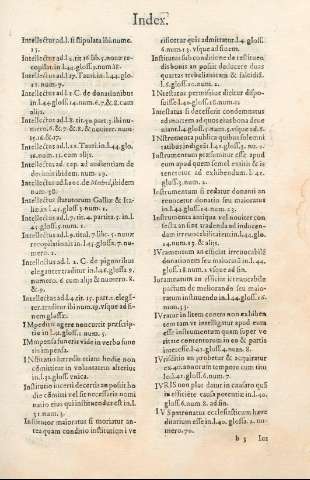 Index.
Intellectus ad.l. si stipulata ibi.nume.
13.
Intellectus ad l.1. tit 16 lib.5. nouæ re-
copilat. in l.44.gloss.5.num.18.
Intellectus ad.l.17. Tauri.in l.44.glo.
num. 7.
Intellectus ad.l.1 C. de donationibus
in l.40 gloss 14. num.6.7. & 8. cum
alijs.
Intellectus ad l.8. tit. part.5. ibi nu-
mero.6. & 7. & 8. & nouiter. num-
15. & 17.
Intellectus ad l.22. Tauri.in l.44.glo.
num. 11. cum alijs.
Intellectus ad cap. ad audientiam de
decimis ibidem.num.19.
Intellectus ad l.de Madrid, ibidem
num. 30.
Intellectus statutorum Galliæ & Ita-
liæ in l.45 gloss.3. num.
Intellectus ad l.7. tit.4. partit.5. in l.
45 gloss. num. 2.
Intellectus ad l. tit. 7. libr. 5. nouæ
recopilationis in l. gloss. 7. nu-
mero. 2.
Intellectus ad l. 2. C. de pignoribus
eleganter traditur in l.46 glossa 9.
numero. 6 cum alijs & numero. 8.
& 9.
Intellectus ad l.4. tit.15. part. elegá-
ter traditur ibi num.19. vsque ad fi-
nem glossæ.
IMpeditus agere non currit præscrip-
tio in l. gloss.4. num. 5.
IMpensa funeris vide in verbo fune
ris impensa.
INstitutio hæredis etiam hodie non
committitur in voluntatem alterius
in l.31. glossa vnica.
Institutio incerti decernis an possit ho
die cõmitti vel sit necessaria nomi
natio eius qui instituendus est in l.
31 num.3.
Institutor maioratus si moriatur an-
tequam conditio institutioni ve
ficiõtur quis admittatur.l.4. gloss.
num.13. vsque ad finem.
Institutus sub conditione de restituen-
dis bonis an possit deducere duas
quartas trebellianicam & falcidiã.
l.6.gloss.10.num. 2.
INtestatus permissiue dicitur dispo-
suisse l.40.gloss.16.num.12
Intestatus si decesserit condemnatus
ad mortem ad quos eius bona deue
niant.l.4.gloss.5.num.6.vsque ad.9.
INstrumenta publica quibus solemni
tatibus indigeãt.l.3.gloss. num. 2
INstrumentum præsumitur esse apud
eum apud quem semel extitit & is
tenetur ad exhibendum. l.
gloss. num. 2.
Instrumentum si reddatur donanti an
reuocetur donatio seu maioratus
in l.44. gloss.1. num. 16.
Instrumenta antiqua vel nouiter con
fecta an sint tradenda ad inducen-
dam irreuocabilitatem in l.44.glo.
num.13. & alijs.
IVramentum an efficiat irreuocabile
donationem seu maioratum in l.44.
gloss. num. 2. vsque ad fin.
Iuramentum an efficiat irreuocabile
pactum de meliorando seu maio-
ratum instituendo in l.44. gloss.
num.
IVratur in litem contra non exhiben
tem tam vt intelligatur apud eum
esse instrumentum quam super ve
ritate contentorum in eo & partis
interesse.l.gloss. num.
IVrisdictio an probetur & acquiratur
ex 40.annorum tempore cum titu-
lo.l.41.gloss.6. num.7.
IVRIS non plac datur in causato qui
in efficiête causa potentiæ in l.40.
gloss.6.num.8. ad fin.
IVS patronatus ecclesiasticum hære-
ditarium esse in l.40. glossa. nu-
mero.70.
b 3 Ius